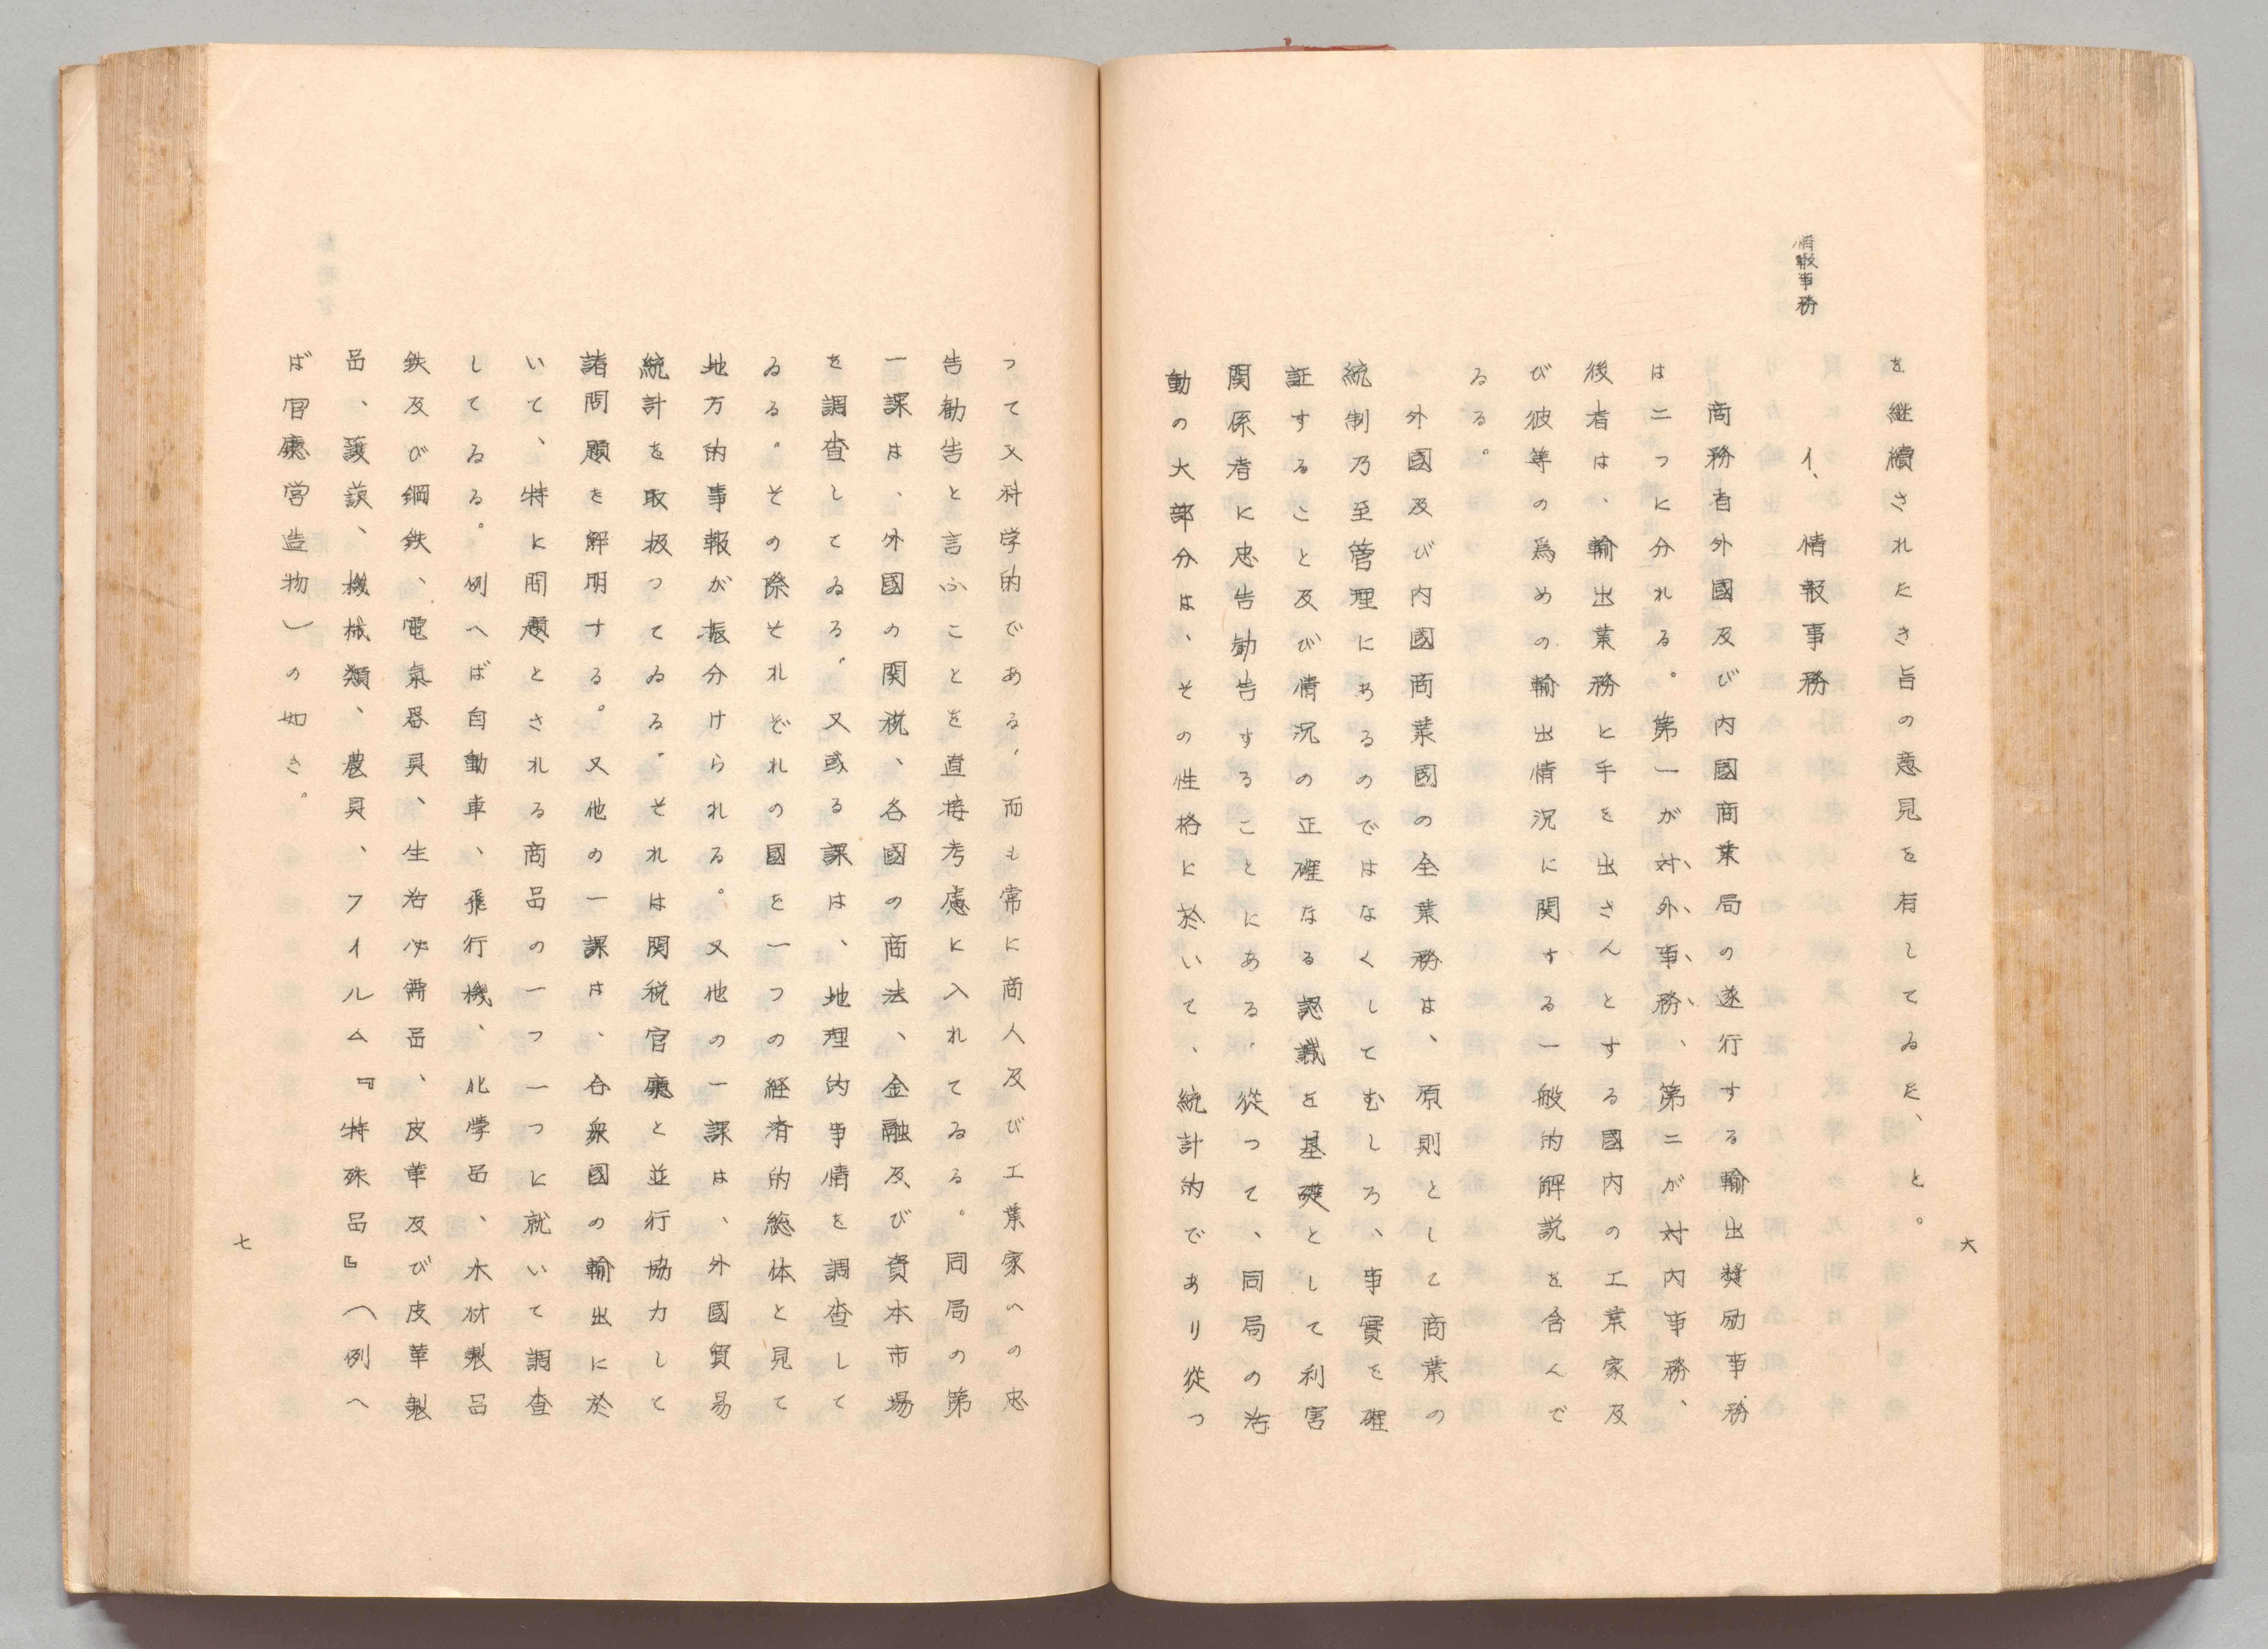 を継續されたき旨の意見を有してゐた、と。
情報事務
イ、情報事務
商務省外國及び内國商業局の遂行する輸出奬励事務
は二つに分れる。第一が対外事務、第二が対内事務、
後者は、輸出業務に手を出さんとする國内の工業家及
び彼等の爲めの輸出情況に関する一般的解説を含んで
ゐる。
外國及び内國商業國の全業務は、原則として商業の
統制乃至管理にあるのではなくしてむしろ、事實を確
証すること及び情況の正確なる認識を基礎として利害
関係者に忠告勧告することにある、從つて、同局の活
動の大部分は、その性格に於いて、統計的であり從つ
六
つて又科学的である、而も常に商人及び工業家への忠
告勧告と言ふことを直接考慮に入れてゐる。同局の第
一課は、外國の関税、各國の商法、金融及び資本市場
を調査してゐる、又或る課は、地理的事情を調査して
ゐる。その際それぞれの國を一つの経済的総体と見て
地方的事報が振分けられる。又他の一課は、外國貿易
統計を取扱つてゐる、それは関税官廳と並行協力して
諸問題を解明する。又他の一課は、合衆國の輸出に於
いて、特に問題とされる商品の一つ一つに就いて調査
してゐる。例へば自動車、飛行機、化學品、木材製品
鉄及び鋼鉄、電氣器具、生活必需品、皮革及び皮革製
品、護謨、機械類、農具、フイルム『特殊品』（例へ
ば官廳営造物）の如き。
七